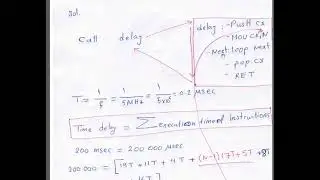 Sol.
Call delay
delay: - Push cx
- MOV CX, N
Next: loop next
- pop cx
- RET
T = 1/f = 1/5MHz = 1/5x10⁶ = 0.2 μsec
Time delay = ∑ execution time of Instructions
200 msec = 200 000 μsec
200 000 = [ 19T + 11T + 4T + (N-1)17T + 5T + 8T